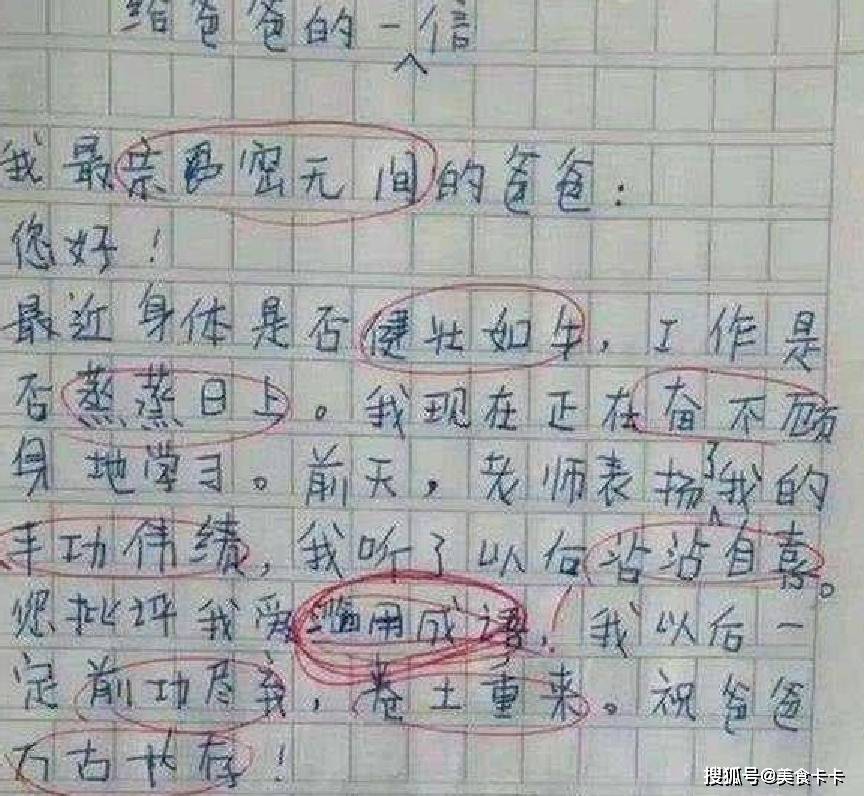 给爸爸的一信
我最亲密无间的爸爸:
您好!
最近身体是否健壮如牛,工作是
否蒸蒸日上。我现在正在奋不顾
身地学习。前天,老师表扬了我的
丰功伟绩,我听了以后沾沾自喜。
您批评我爱滥用成语,我以后一
定前功尽弃,卷土重来。祝爸爸
万古长存!
搜狐号@美食卡卡